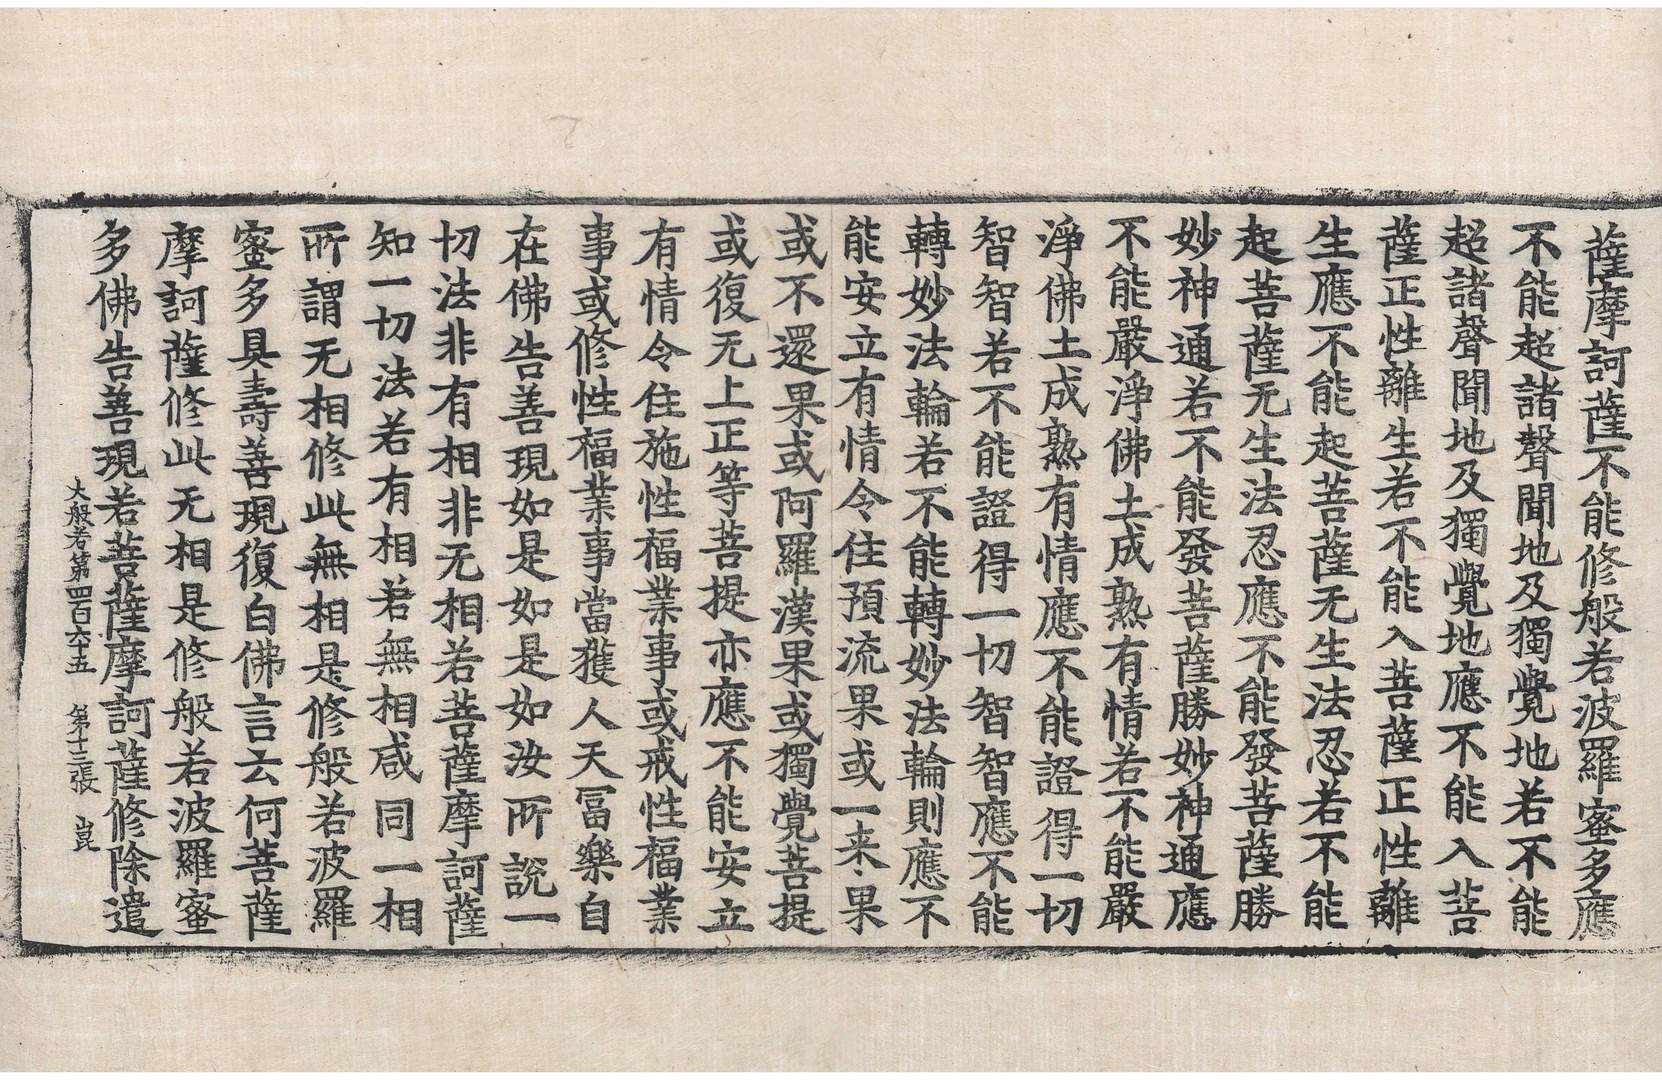 薩摩訶薩不能修般若波羅蜜多應
不能超諸聲聞地及獨覺地若不能
超諸聲聞地及獨覺地應不能入菩
薩正性離生若不能入菩薩正性離
生應不能起菩薩无生法忍若不能
起菩薩无生法忍應不能發菩薩勝
妙神通若不能發菩薩勝妙神通應
不能嚴淨佛土成熟有情若不能嚴
淨佛土成熟有情應不能證得一切
智智若不能證得一切智智應不能
轉妙法輪若不能轉妙法輪則應不
能安立有情令住預流果或一来果
或不還果或阿羅漢果或獨覺菩提
或復无上正等菩提亦應不能安立
有情令住施性福業事或戒性福業
事或修性福業事當獲人天冨樂自
在佛告善現如是如是如汝所說一
切法非有相非无相若菩薩摩訶薩
知一切法若有相若無相咸同一相
所謂无相修此無相是修般若波羅
蜜多具壽善現復白佛言云何菩薩
摩訶薩修此无相是修般若波羅蜜
多佛告善現若菩薩摩訶薩修除遣
大般若第四百六十五 第十三張 崑